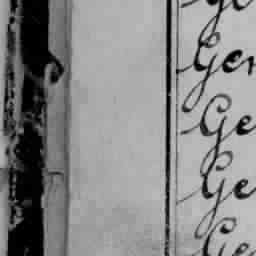 Ge
Ger
Ge
Ge
Ge